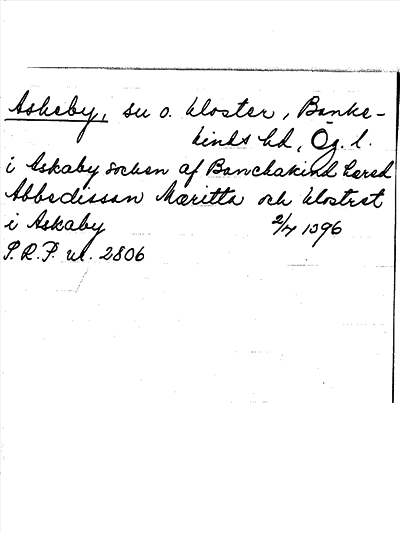 Askeby, sn o. kloster, Banke-
kinds hd, Ög. l.
i Askaby socken af Banchakind hæred
Abbedissan Mæritta och klostret
i Askaby 2/7 1396
P.R.P. nr. 2806